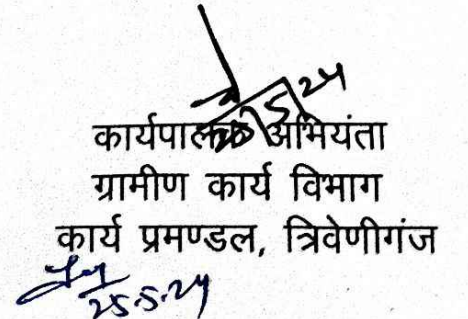 कार्यपालक अभियंता
ग्रामीण कार्य विभाग
कार्य प्रमण्डल, त्रिवेणीगंज
25.5.24